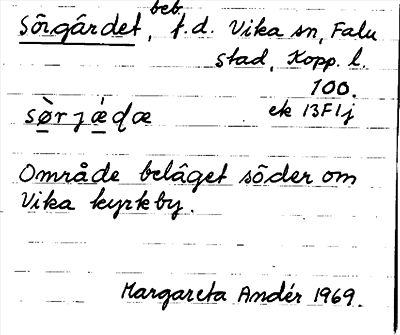 beb.
Sörgärdet, f.d. Vika sn, Falu
stad, Kopp. l.
100.
ek 13F1j
sø̀rjǽɖæ
Område beläget söder om
Vika kyrkby.
Margareta Andér 1969.